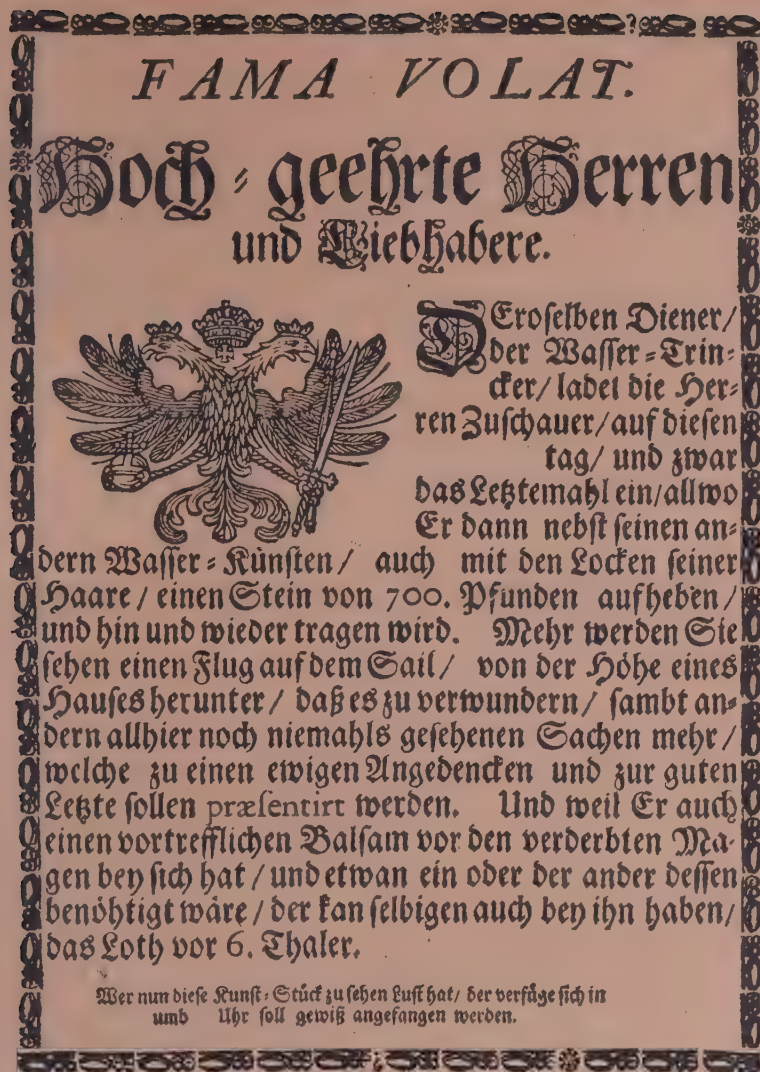 FAMA VOLAT.
Hoch-geehrte Herren
und Liebhabere.
DEroselben Diener/
der Wasser-Trin-
cker/ ladet die Her-
ren Zuschauer/auf diesen
tag/ und zwar
das Letztemahl ein/allwo
Er dann nebst seinen an-
dern Wasser-Künsten/ auch mit den Locken seiner
Haare/ einen Stein von 700. Pfunden aufheben/
und hin und wieder tragen wird. Mehr werden Sie
sehen einen Flug auf dem Sail/ von der Höhe eines
Hauses herunter/ daß es zu verwundern/ sambt an-
dern allhier noch niemahls gesehenen Sachen mehr/
welche zu einen ewigen Angedencken und zur guten
Letzte sollen præsentirt werden. Und weil Er auch
einen vortrefflichen Balsam vor den verderbten Ma-
gen bey sich hat/ und etwan ein oder der ander dessen
benöhtigt wäre/ der kan selbigen auch bey ihn haben/
das Loth vor 6. Thaler.
Wer nun diese Kunst-Stück zu sehen Lust hat/ der verfüge sich in
umb Uhr soll gewiß angefangen werden.